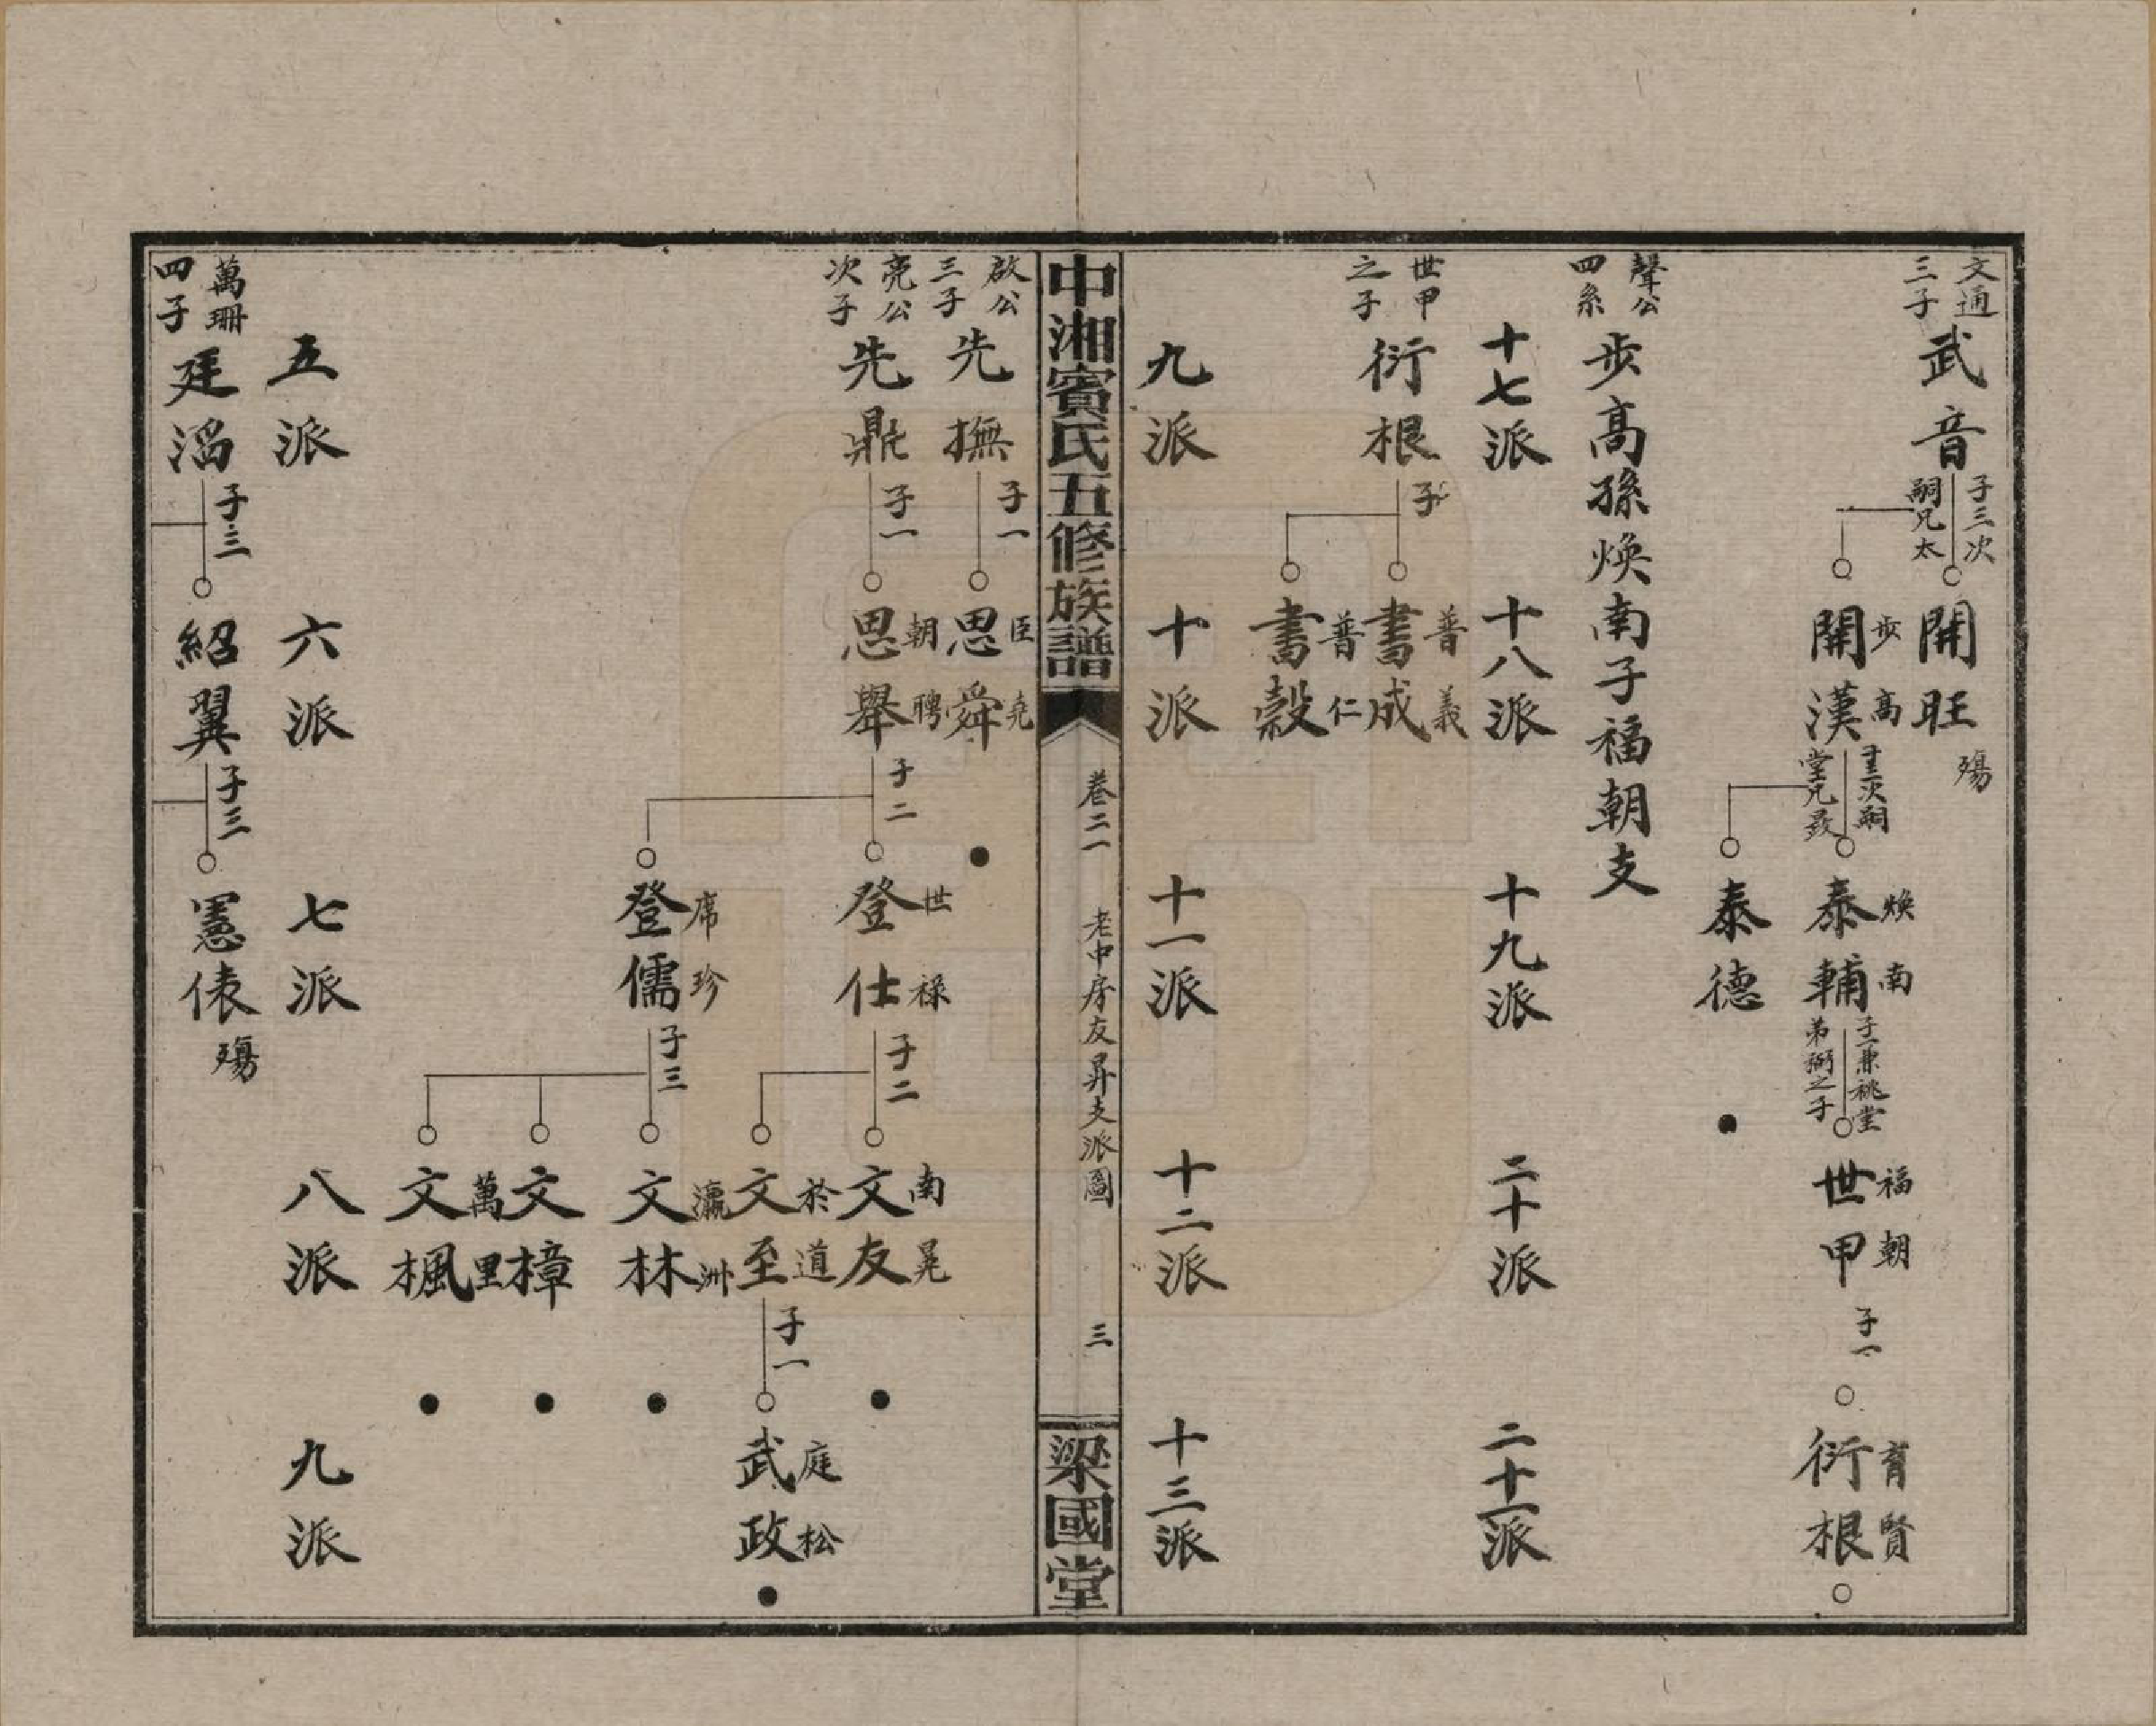 文通
三子
武音
子三次
嗣兄太
開旺
殤
步高
開漢
子三次嗣
堂兄
煥南
泰輔
子一兼祧堂
弟弼之子
福朝
世甲
子一
育賢
衍根
泰德
聲公
四系
步高孫煥南子福朝支
十七派
十八派
十九派
二十派
二十一派
世甲
之子
衍根
子
普義
書成
普仁
書穀
九派
十派
十一派
十二派
十三派
中湘賓氏五修族譜
卷二一
老中房友昇支派圖
三
梁國堂
啟公
三子
先撫
子一
臣堯
思舜
亮公
次子
先鼎
子一
朝聘
思舉
子二
世祿
登仕
子二
南晃
文友
於道
文至
子一
庭松
武政
席珍
登儒
子三
瀛洲
文林
文樟
萬里
文楓
五派
六派
七派
八派
九派
萬珊
四子
廷滔
子三
紹翼
子三
憲俵
殤